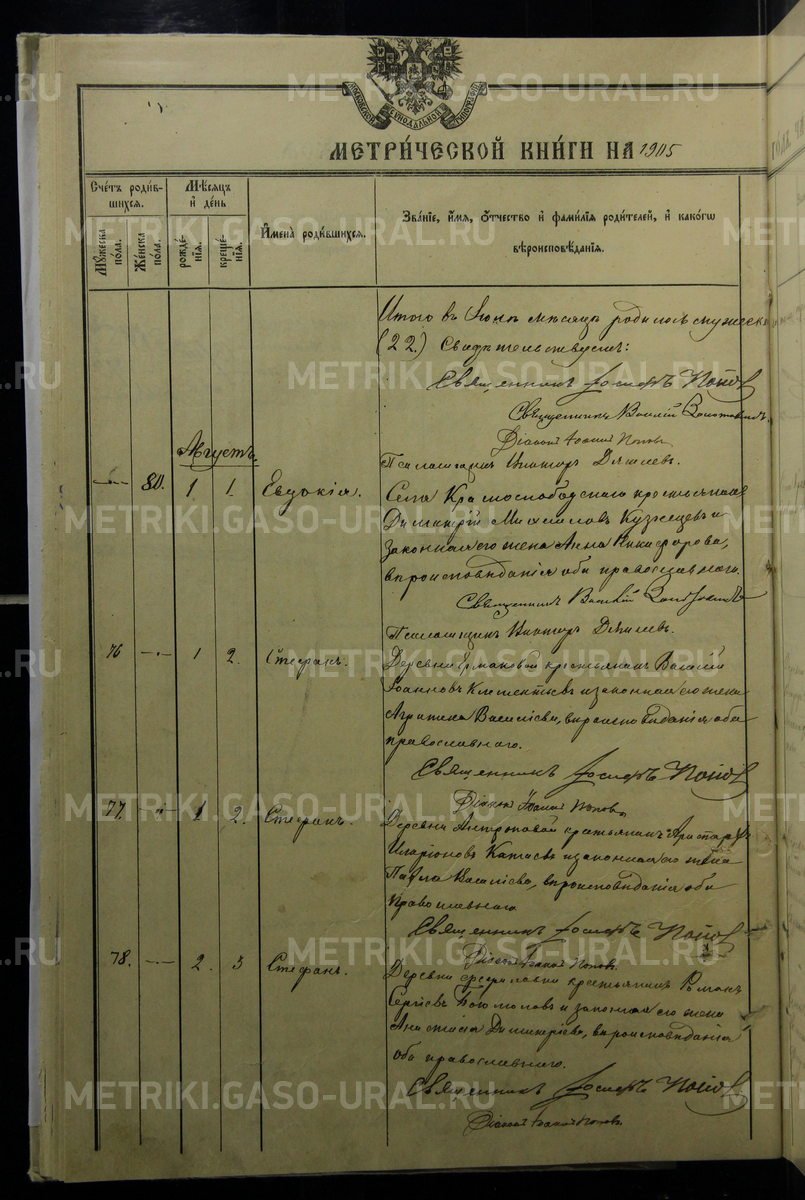 МОСКОВСКОЙ СѴНОДАЛЬНОЙ ТИПОГРАФІИ
МЕТРИ́ЧЕСКОЙ КНИ́ГИ НА 1905
Счетъ роди́в-
шихся.
Мꙋжеска по́ла.
Же́нска по́ла.
Мѣсяцъ
и҆ де́нь
рожде́нія.
креще́нія.
И҆мена̀ роди́вшихся.
Зва́ніе, и҆́мя, ѻ҆́тчество и҆ фами́лія роди́телей, и҆ како́гѡ
вѣроисповѣ́данія.
Итого въ Іюлѣ мѣсяцѣ родилось мужеска
(22.) Свидѣтельствуемъ:
Священникъ Іосифъ Попов
Священникъ Василій
Діаконъ Іоаннъ Попов
Псаломщикъ Викторъ
Августъ.
80. 1. 1. Евдокія. Села Краснослободскаго крестьянинъ
Димитрій Кузнецевъ и
законная его жена Анна Никифорова,
вѣроисповѣданія оба православнаго.
Священникъ Василій
Псаломщикъ Викторъ
76 1 2. Стефанъ. Деревни Ермаковой крестьянинъ Василій
Іоанновъ Климентьевъ и законная его жена
Агрипина Василіева, вѣроисповѣданія оба
православнаго.
Священникъ Іосифъ Попов
Діаконъ Іоаннъ Попов
77. 1. 2. Стефанъ. Деревни Антроповой крестьянинъ Аристархъ
Иларіоновъ и законная его жена
Павла Василіева, вѣроисповѣданія оба
православнаго
Священникъ Іосифъ Попов
Діаконъ Іоаннъ Попов
78. 2. 3 Стефанъ. Деревни крестьянинъ Романъ
Сергіевъ и законная его жена
Анастасія Димитріева, вѣроисповѣданія
оба православнаго.
Священникъ Іосифъ Попов
Діаконъ Іоаннъ Попов
METRIKI.GASO-URAL.RU